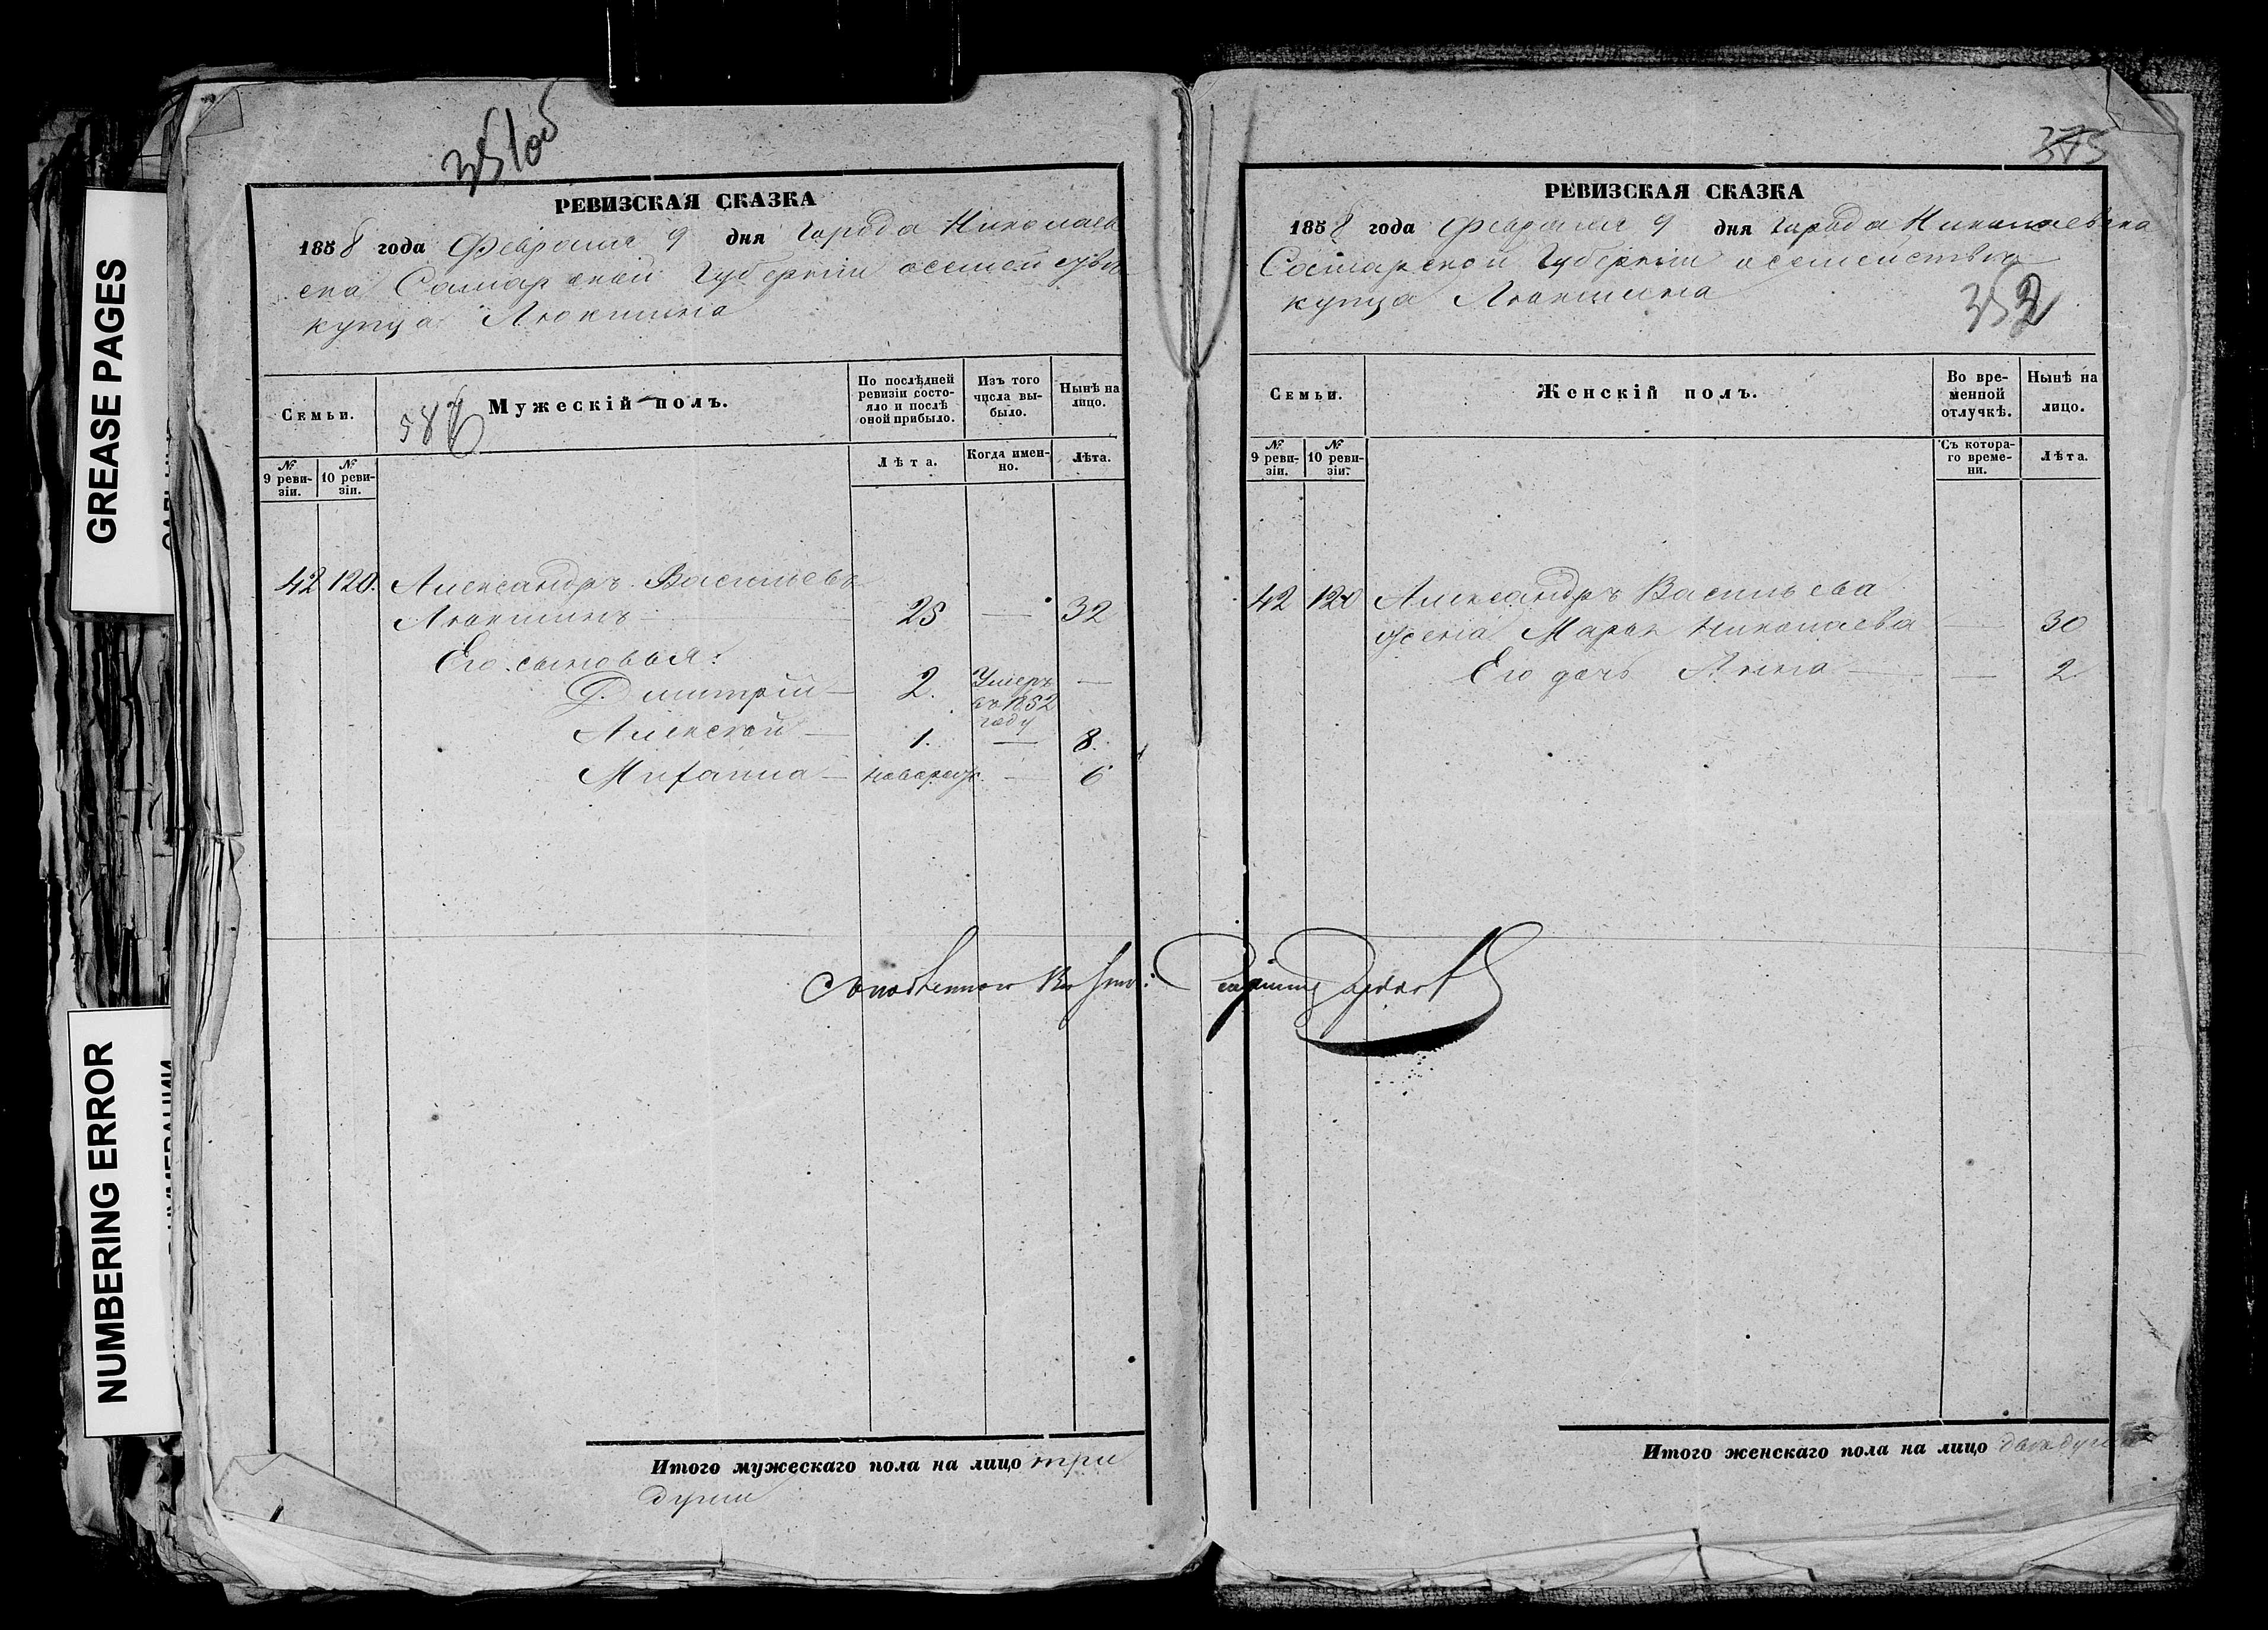 GREASE PAGES
NUMBERING ERROR
351об
РЕВИЗСКАЯ СКАЗКА
1858 года Февраля 9 дня города Николаев
ска Самарской Губернии осемействѣ
купца Люкшина
Семьи.
Мужескій полъ.
По послѣдней ревизіи состояло и послѣ оной прибыло.
Изъ того числа выбыло.
Нынѣ на лицо.
№ 9 ревизіи.
№ 10 ревизіи.
Лѣта.
Когда именно.
Лѣта.
42 120. Александръ Васильевъ
Люкшинъ — 25 — 32
Его сыновья:
Дмитрій — 2. Умеръ въ 1852 году —
Алексѣй — 1. — 8.
Михаила — новорож. — 6
Итого мужескаго пола на лицо три
души
375
РЕВИЗСКАЯ СКАЗКА
1858 года Февраля 9 дня города Николаевска
Самарской Губернии осемействѣ
купца Люкшина
352
Семьи.
Женскій полъ.
Во временной отлучкѣ.
Нынѣ на лицо.
№ 9 ревизіи.
№ 10 ревизіи.
Съ котораго времени.
Лѣта.
42 120 Александръ Васильева
жена Марья Николаева — 30
Его дочь Анна — — 2
Итого женскаго пола на лицо двѣ души